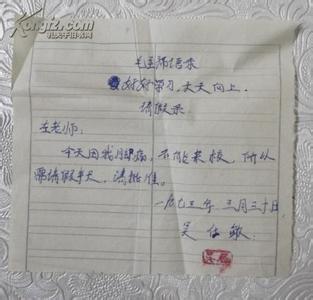 毛主席语录
好好学习，天天向上。
请假条
左老师：
今天因我脚痛，不能来校，所以
需请假半天，请批准。
一九七三年 三月三十日
吴